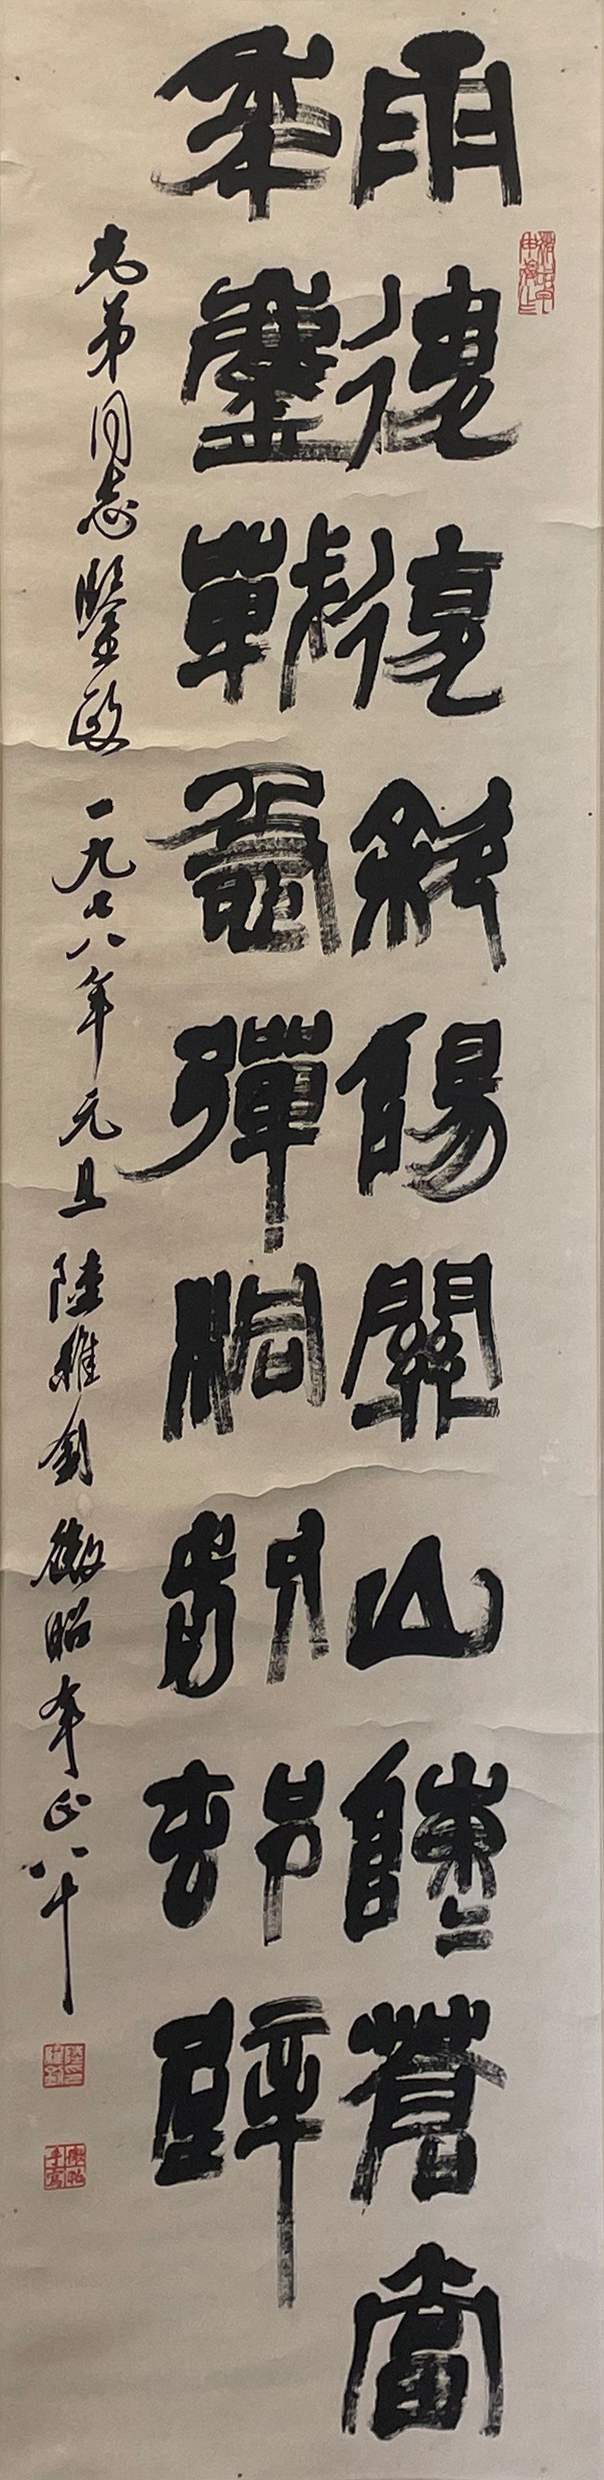 雨後復斜陽關山陣陣蒼當
年鏖戰急彈洞前邨壁
光弟同志鑒政 一九七八年元旦 陸維釗 微昭年正八十